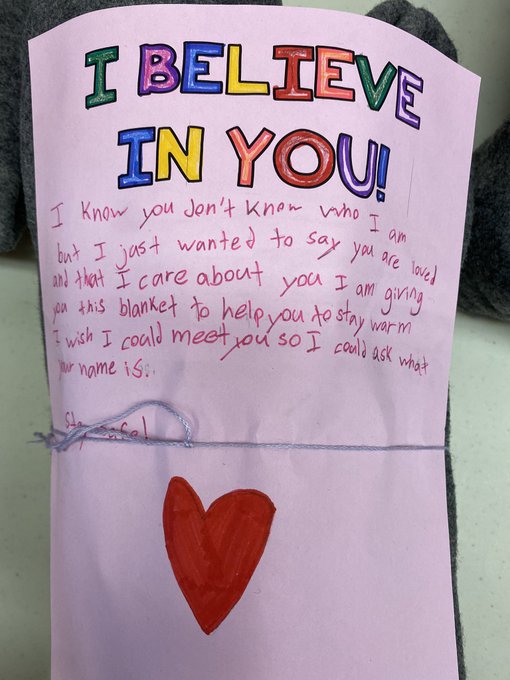 I BELIEVE
IN YOU!
I know you don't know who I am
but I just wanted to say you are loved
and that I care about you I am giving
you this blanket to help you to stay warm
I wish I could meet you so I could ask what
your name is.
Stay safe!